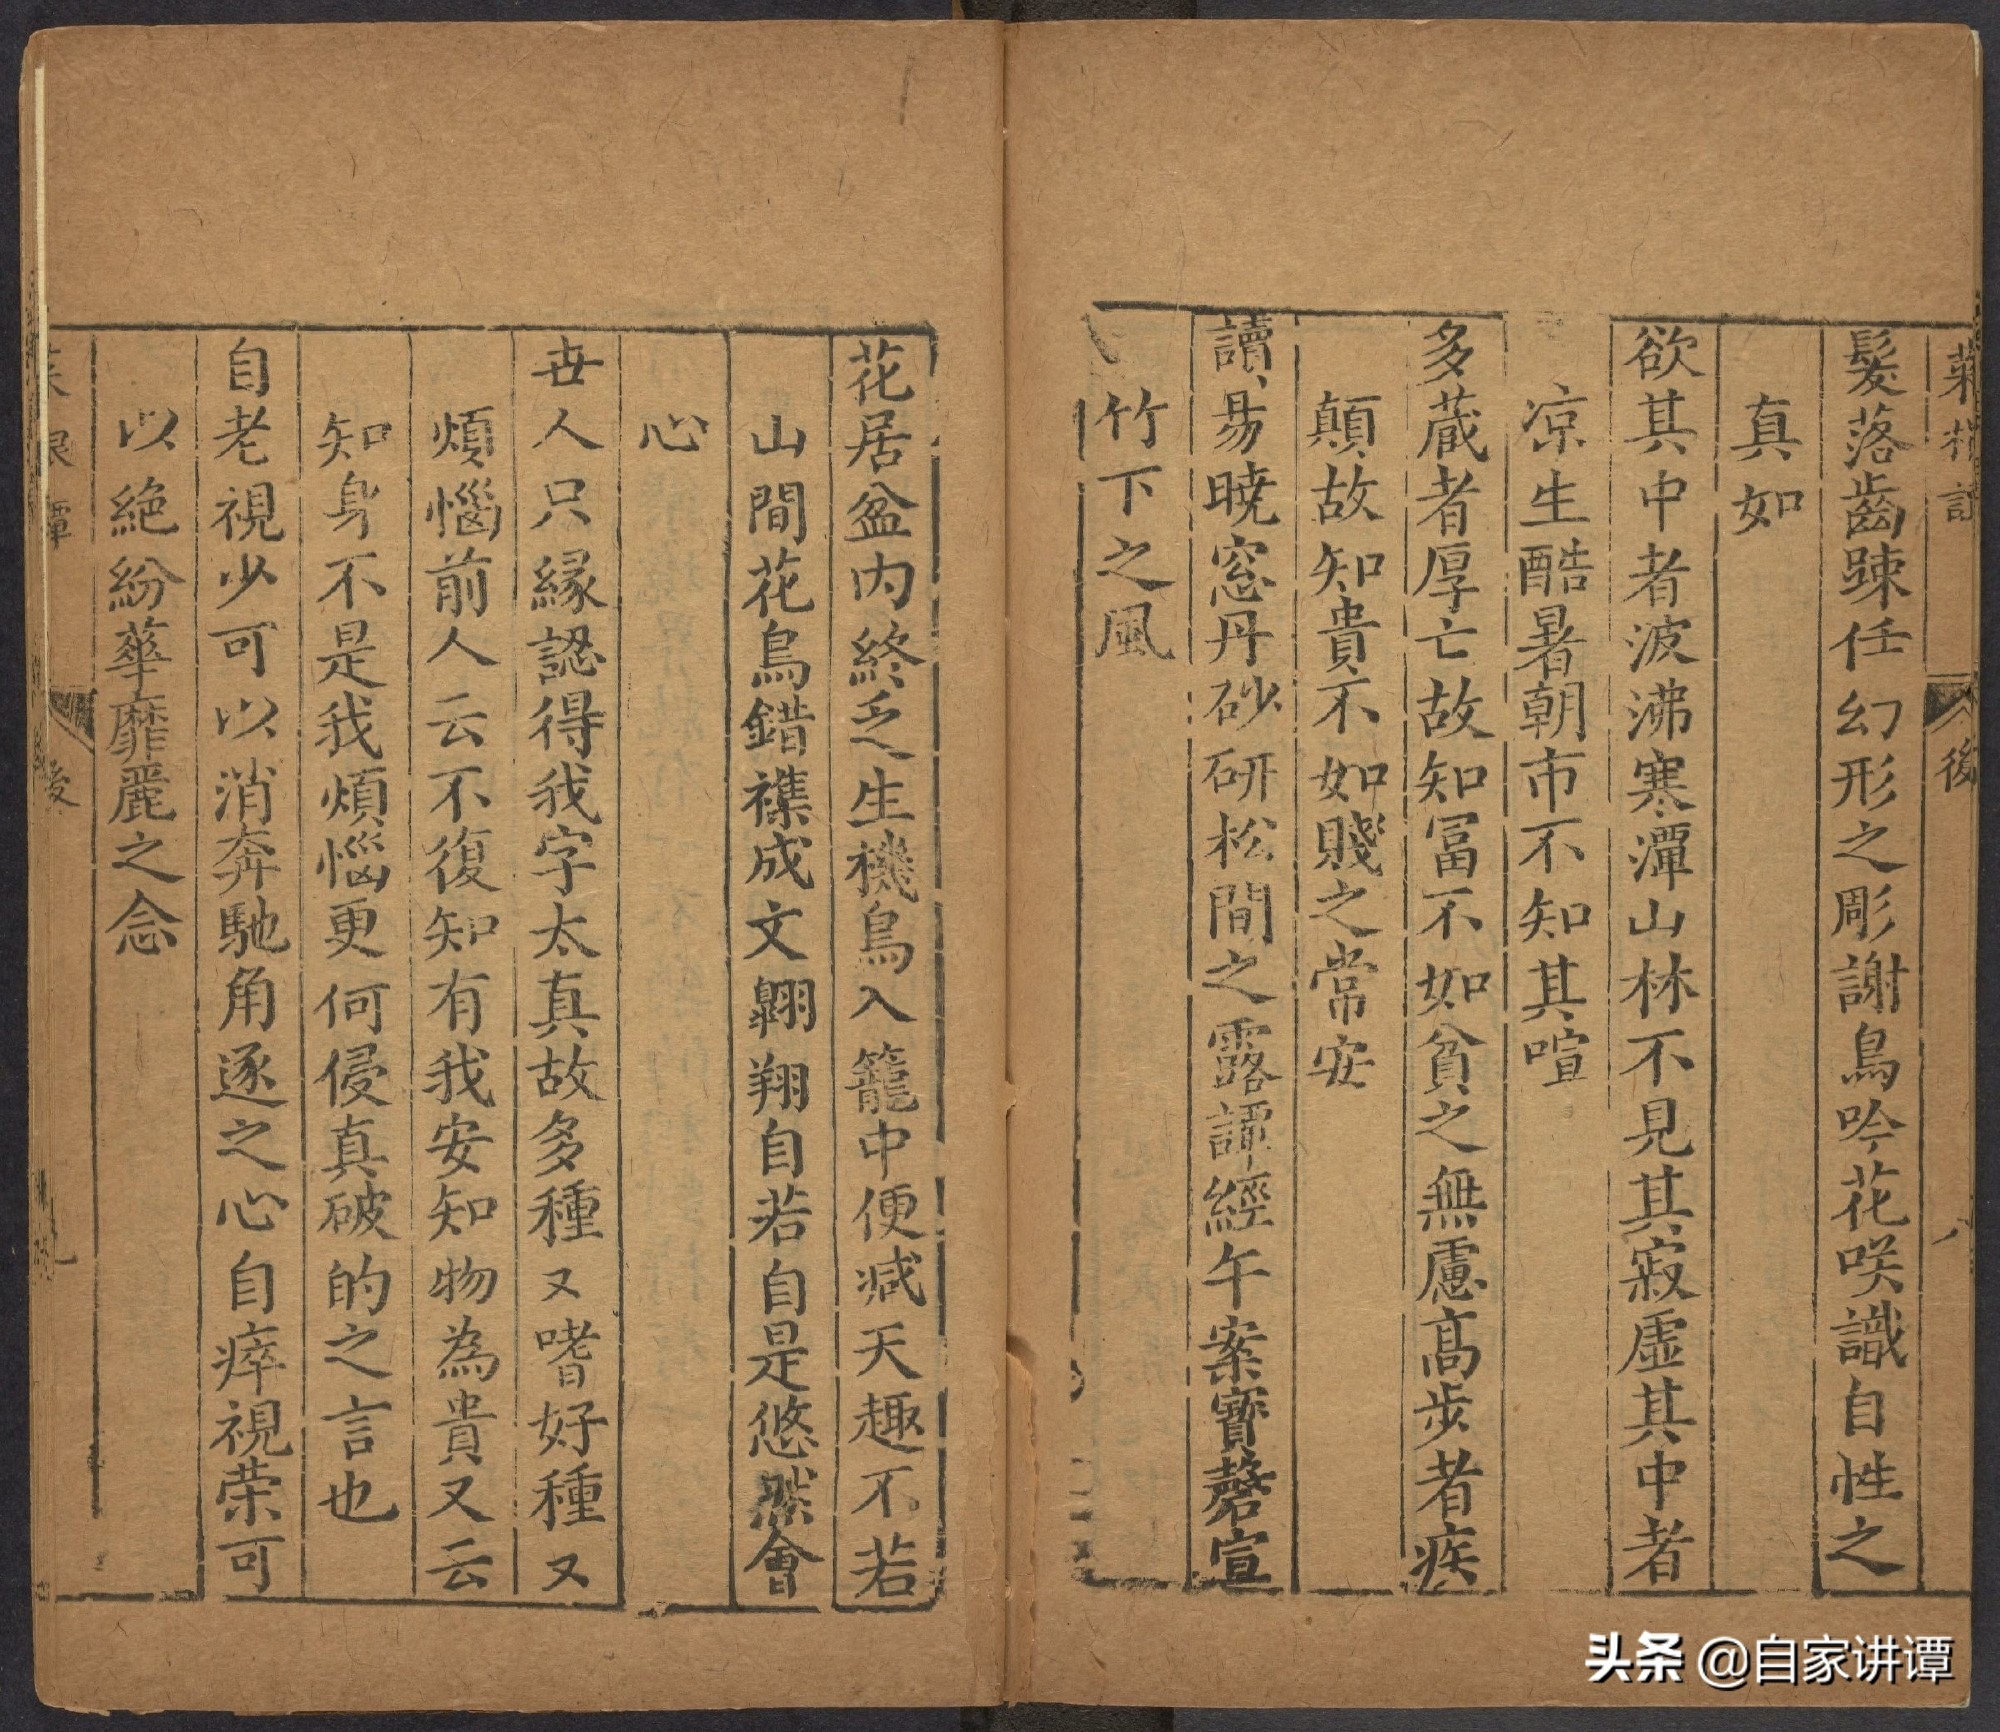 菜根譚 後 八
髮落齒踈任幻形之彫謝鳥吟花咲識自性之
真如
欲其中者波沸寒潭山林不見其寂虛其中者
凉生酷暑朝市不知其喧
多蔵者厚亡故知冨不如貧之無慮髙步者疾
顛故知貴不如賤之常安
讀易曉窓丹砂研松間之露譚經午案寶磬宣
竹下之風
花居盆内終乏生機鳥入籠中便减天趣不若
山間花鳥錯襍成文翺翔自若自是悠然會
心
世人只縁認得我字太真故多種又嗜好種又
煩惱前人云不復知有我安知物為貴又云
知身不是我煩惱更何侵真破的之言也
自老視少可以消奔馳角逐之心自瘁視荣可
以絶紛華靡麗之念
根譚 後
头条 @自家讲谭